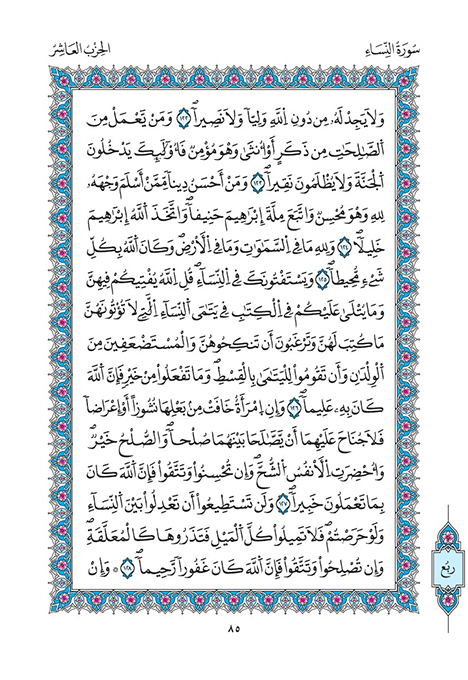 سُورَةُ النِّسَاءِ
الحِزْبُ العَاشِرُ
وَلَا يَجِدْ لَهُۥ مِن دُونِ اِ۬للَّهِ وَلِيّاٗ وَلَا نَصِيراٗۖ ١٢٢ وَمَنْ يَّعْمَلْ مِنَ
اَ۬لصَّٰلِحَٰتِ مِن ذَكَرٍ اَوُ ا۟نث۪يٰ وَهُوَ مُؤْمِنٞ فَأُوْلَٰٓئِكَ يَدْخُلُونَ
اَ۬لْجَنَّةَ وَلَا يُظْلَمُونَ نَقِيراٗۖ ١٢٣ وَمَنَ اَحْسَنُ دِيناٗ مِّمَّنَ اَسْلَمَ وَجْهَهُۥ
لِلهِ وَهُوَ مُحْسِنٞ وَاتَّبَعَ مِلَّةَ إِبْرَٰهِيمَ حَنِيفاٗۖ وَاتَّخَذَ اَ۬للَّهُ إِبْرَٰهِيمَ
خَلِيلاٗۖ ١٢٤ وَلِلهِ مَا فِے اِ۬لسَّمَٰوَٰتِ وَمَا فِے اِ۬لَارْضِۖ وَكَانَ اَ۬للَّهُ بِكُلِّ
شَےْءٖ مُّحِيطاٗۖ ١٢٥ وَيَسْتَفْتُونَكَ فِے اِ۬لنِّسَآءِۖ قُلِ اِ۬للَّهُ يُفْتِيكُمْ فِيهِنَّ
وَمَا يُتْل۪يٰ عَلَيْكُمْ فِے اِ۬لْكِتَٰبِ فِے يَتَٰمَى اَ۬لنِّسَآءِ اِ۬لٰتِے لَا تُوتُونَهُنَّ
مَا كُتِبَ لَهُنَّ وَتَرْغَبُونَ أَن تَنكِحُوهُنَّ وَالْمُسْتَضْعَفِينَ مِنَ
اَ۬لْوِلْدَٰنِ وَأَن تَقُومُواْ لِلْيَتَٰم۪يٰ بِالْقِسْطِۖ وَمَا تَفْعَلُواْ مِنْ خَيْرٖ فَإِنَّ اَ۬للَّهَ
كَانَ بِهِۦ عَلِيماٗۖ ١٢٦ وَإِنِ اِ۪مْرَأَةٌ خَافَتْ مِنۢ بَعْلِهَا نُشُوزاً اَوِ اِعْرَاضاٗ
فَلَا جُنَاحَ عَلَيْهِمَآ أَنْ يَّصَّٰلَحَا بَيْنَهُمَا صُلْحاٗۖ وَالصُّلْحُ خَيْرٞۖ
وَأُحْضِرَتِ اِ۬لَانفُسُ اُ۬لشُّحَّۖ وَإِن تُحْسِنُواْ وَتَتَّقُواْ فَإِنَّ اَ۬للَّهَ كَانَ
بِمَا تَعْمَلُونَ خَبِيراٗۖ ١٢٧ وَلَن تَسْتَطِيعُوٓاْ أَن تَعْدِلُواْ بَيْنَ اَ۬لنِّسَآءِ
وَلَوْ حَرَصْتُمْۖ فَلَا تَمِيلُواْ كُلَّ اَ۬لْمَيْلِ فَتَذَرُوهَا كَالْمُعَلَّقَةِۖ
وَإِن تُصْلِحُواْ وَتَتَّقُواْ فَإِنَّ اَ۬للَّهَ كَانَ غَفُوراٗ رَّحِيماٗۖ ١٢٨ ۞ وَإِنْ
ربع
٨٥